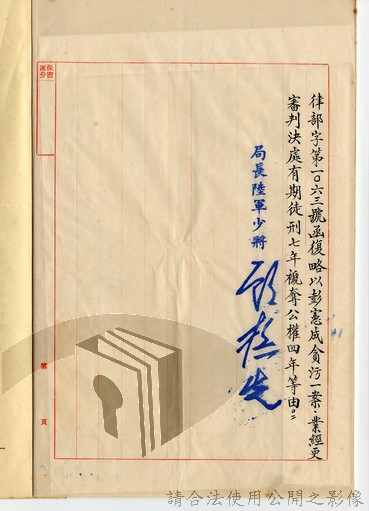 保密區分
律部字第一〇六三號函復略以彭憲成貪污一案，業經更
審判決處有期徒刑七年褫奪公權四年等由。二
局長陸軍少將
第 頁
請合法使用公開之影像